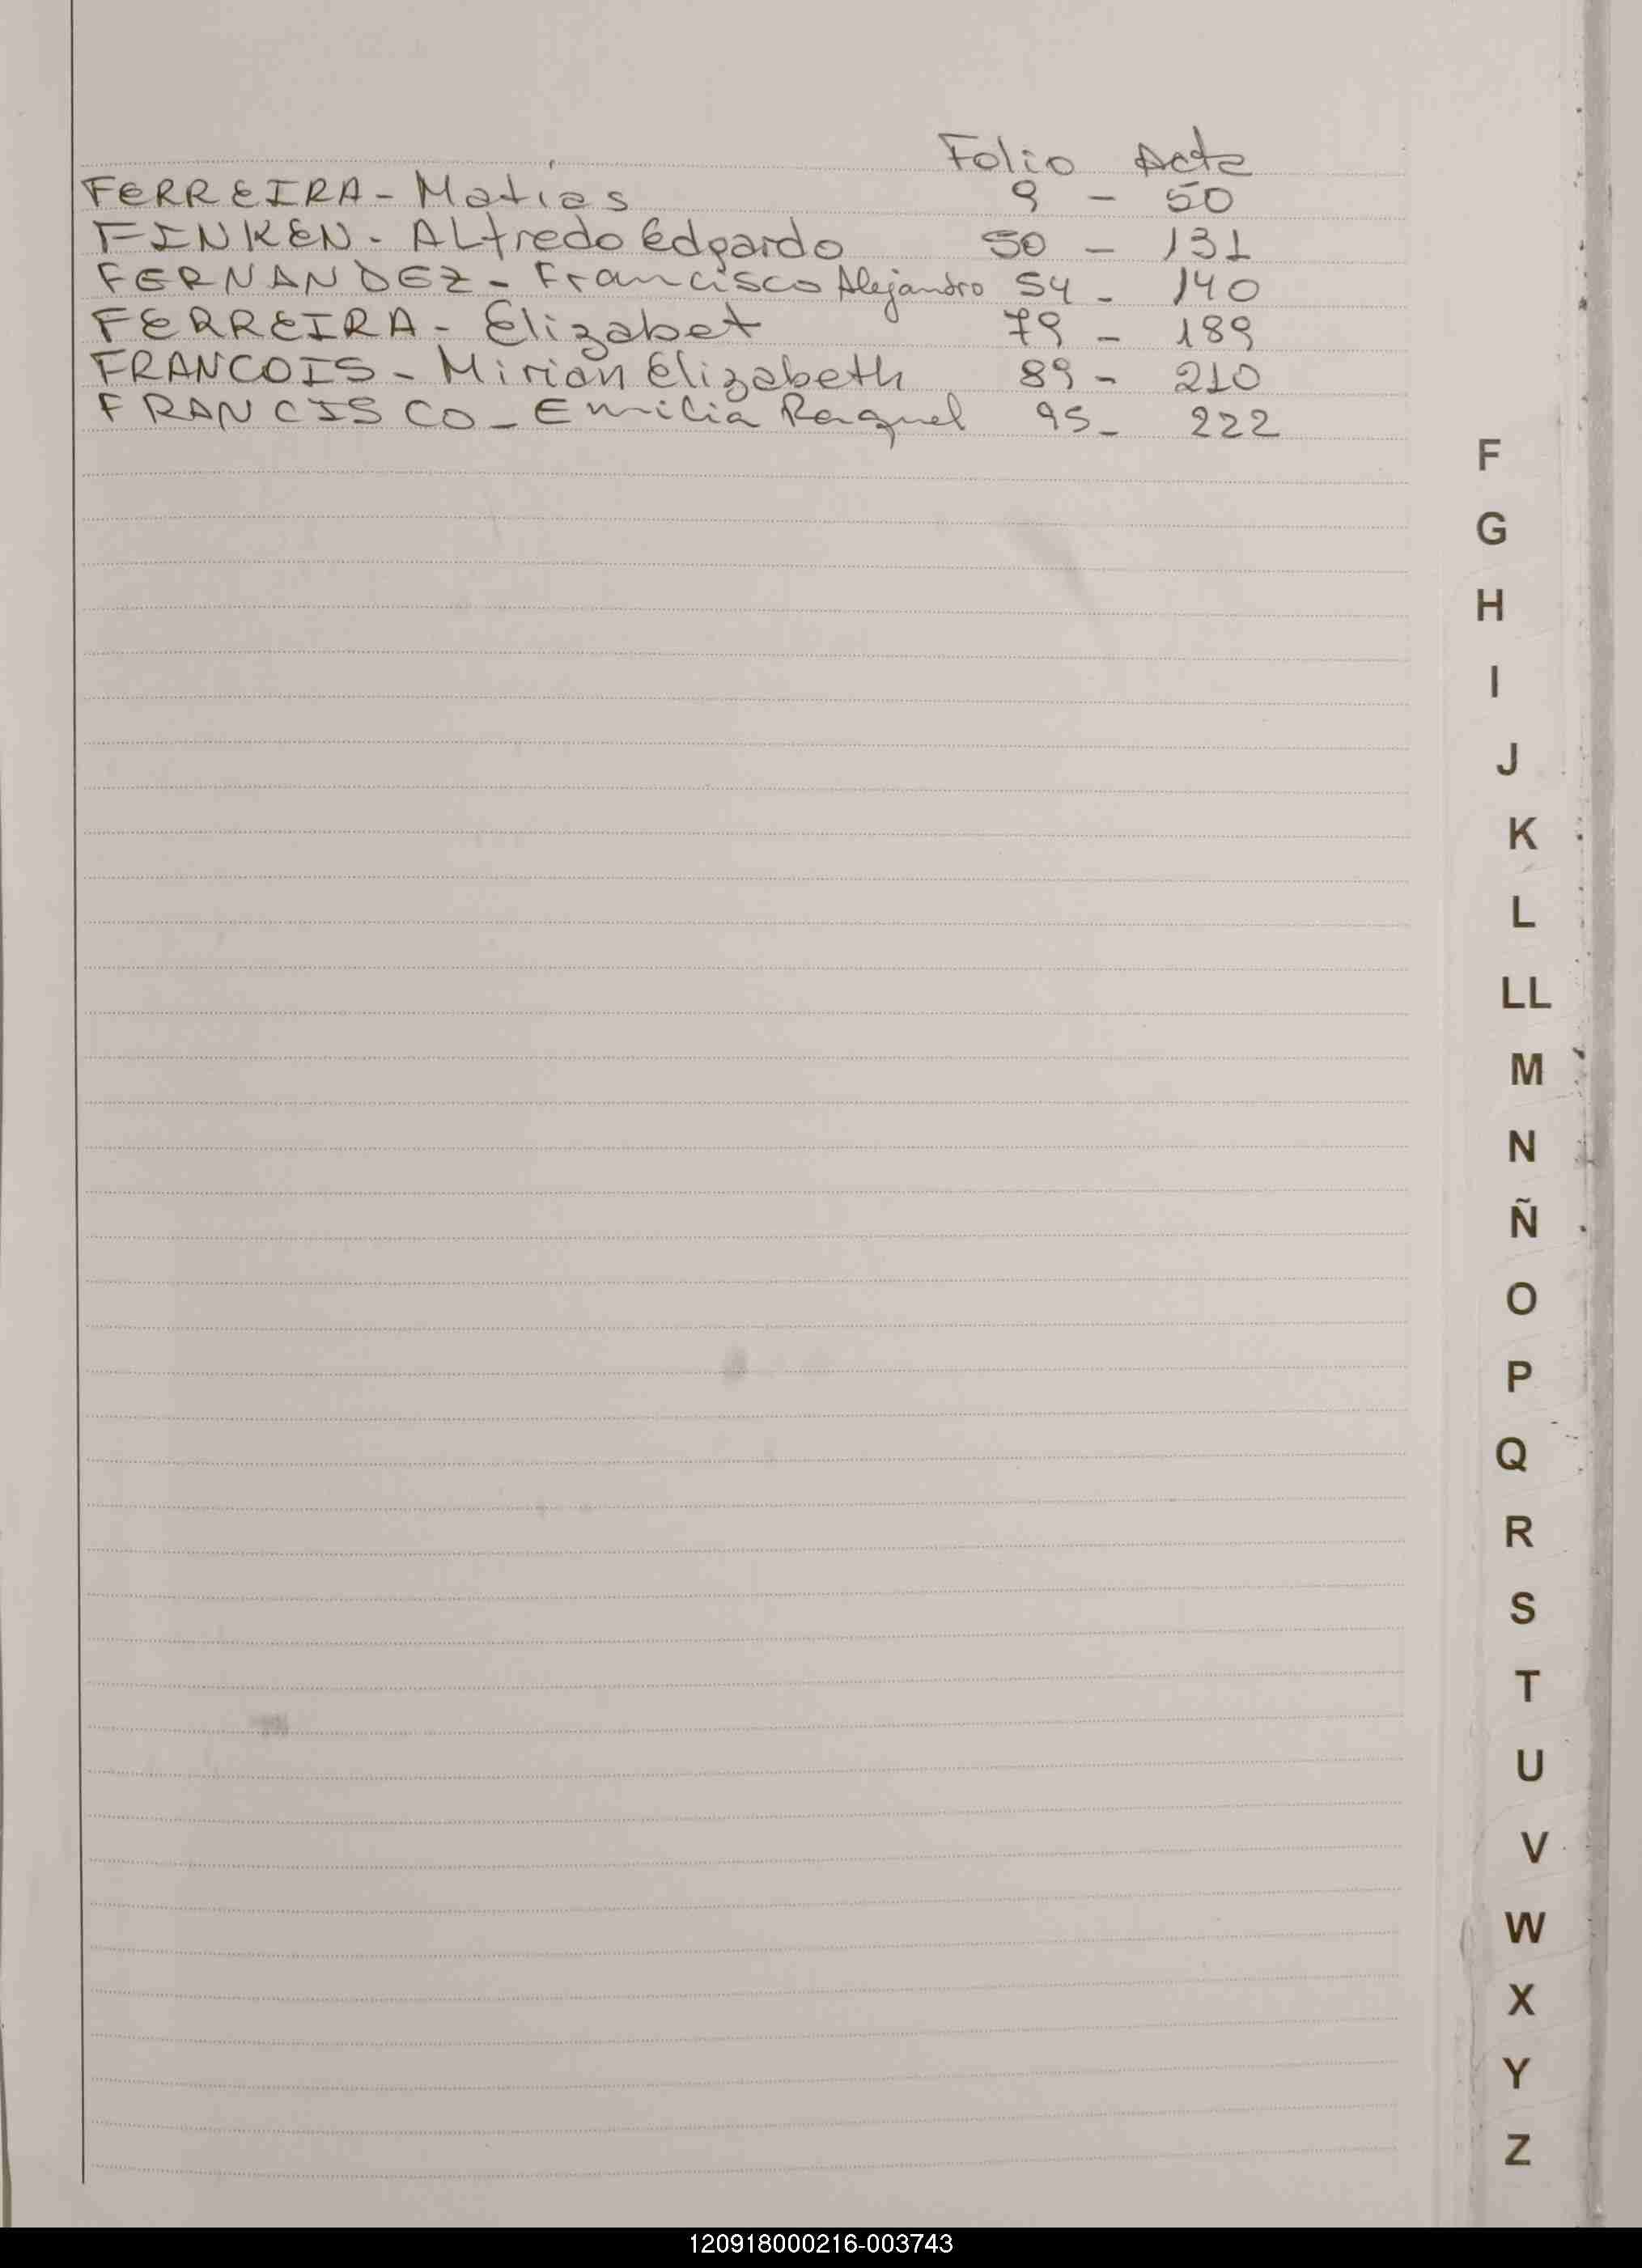 Folio Acta
FERREIRA - Matias 9 - 50
FINKEN - ALfredo Edgardo 50 - 131
FERNANDEZ - Francisco Alejandro 54 - 140
FERREIRA - Elizabet 79 - 189
FRANCOIS - Mirian Elizabeth 89 - 210
FRANCISCO - Emilia Raquel 95 - 222
F
G
H
I
J
K
L
LL
M
N
Ñ
O
P
Q
R
S
T
U
V
W
X
Y
Z
120918000216-003743